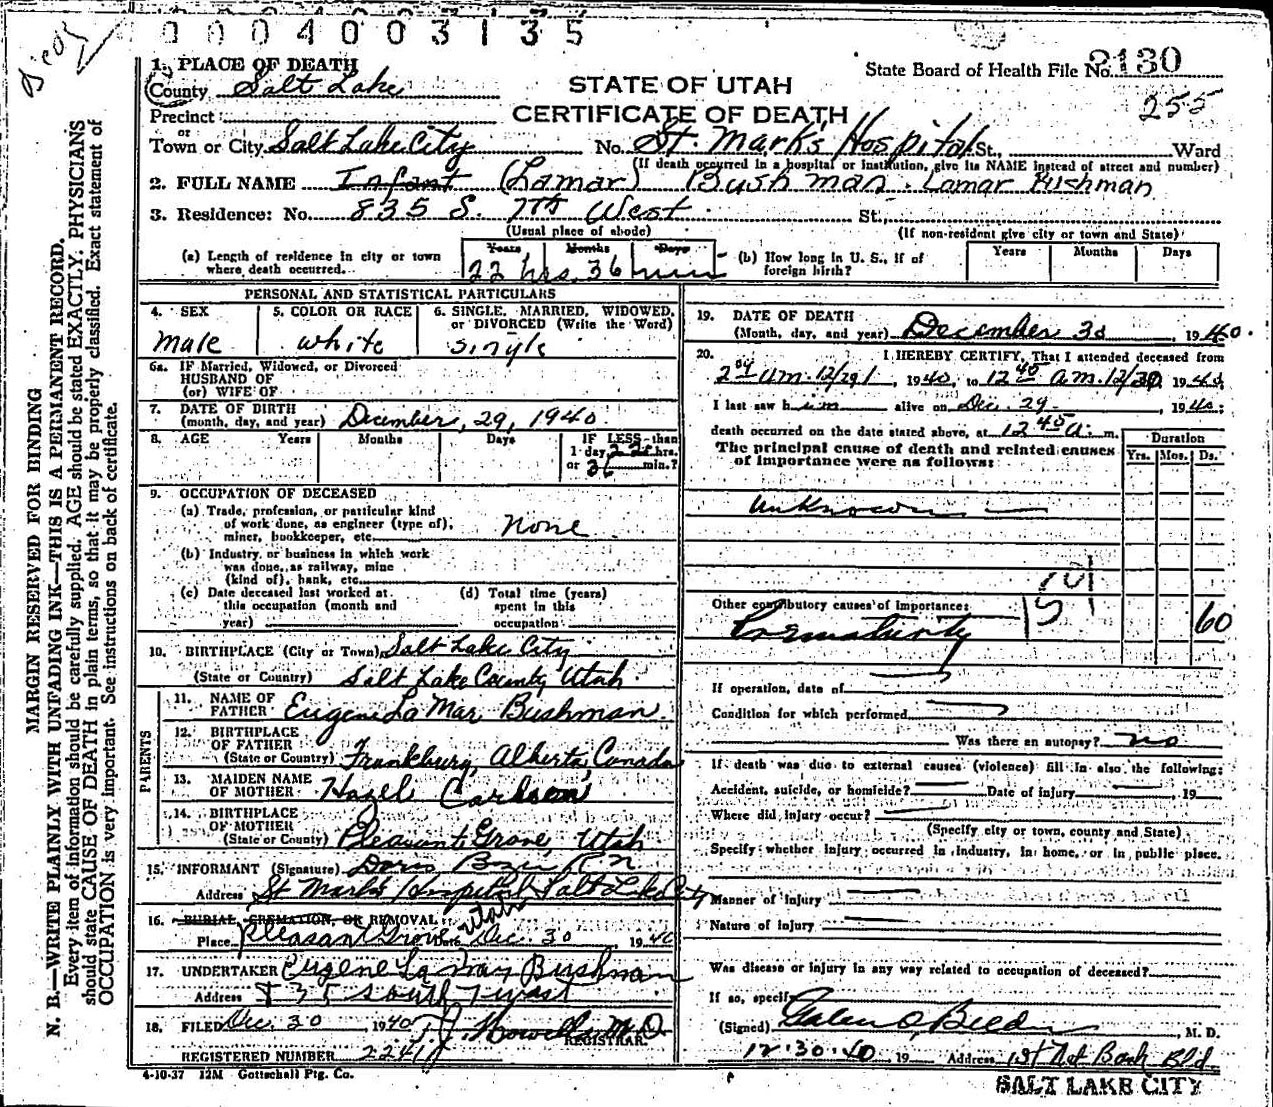 0004003135
1. PLACE OF DEATH
County Salt Lake
STATE OF UTAH
CERTIFICATE OF DEATH
State Board of Health File No. 2130
255
Precinct
or
Town or City Salt Lake City No. St. Mark's Hospital St., Ward
(If death occurred in a hospital or institution, give its NAME instead of street and number)
2. FULL NAME Infant (Lamar) Bushman. Lamar Bushman
3. Residence: No. 835 S. 7th West St.,
(Usual place of abode)
(If non-resident give city or town and State)
(a) Length of residence in city or town where death occurred. Years Months Days
22 hrs. 36 min
(b) How long in U. S., if of foreign birth? Years Months Days
PERSONAL AND STATISTICAL PARTICULARS
4. SEX
male
5. COLOR OR RACE
white
6. SINGLE, MARRIED, WIDOWED, or DIVORCED (Write the Word)
single
6a. IF Married, Widowed, or Divorced
HUSBAND OF
(or) WIFE OF
7. DATE OF BIRTH
(month, day, and year) December, 29, 1940
8. AGE Years Months Days IF LESS than
1 day 22 hrs.
or 36 min.?
9. OCCUPATION OF DECEASED
(a) Trade, profession, or particular kind
of work done, as engineer (type of),
miner, bookkeeper, etc. None
(b) Industry or business in which work
was done, as railway, mine
(kind of), bank, etc.
(c) Date deceased last worked at
this occupation (month and
year)
(d) Total time (years)
spent in this
occupation
10. BIRTHPLACE (City or Town) Salt Lake City
(State or Country) Salt Lake County, Utah
PARENTS
11. NAME OF
FATHER Eugene La Mar Bushman
12. BIRTHPLACE
OF FATHER
(State or Country) Frankburg, Alberta, Canada
13. MAIDEN NAME
OF MOTHER Hazel Carlson
14. BIRTHPLACE
OF MOTHER
(State or County) Pleasant Grove, Utah
15. INFORMANT (Signature) Doris R N
Address St Mark's Hospital Salt Lake City
Utah
16. BURIAL, CREMATION, OR REMOVAL
Place Pleasant Grove Date Dec. 30 1940
17. UNDERTAKER Eugene La Mar Bushman
Address 835 South 7 West
18. FILED Dec. 30 1940 T. J. Howells M.D.
REGISTRAR
REGISTERED NUMBER 2241
4-10-37 12M Gottschall Ptg. Co.
19. DATE OF DEATH
(Month, day, and year) December 30 1940.
20. I HEREBY CERTIFY, That I attended deceased from
A.M. 12/29, 1940, to 12 45 A.M. 12/30, 1940,
I last saw him alive on Dec. 29, 1940;
death occurred on the date stated above, at 12 45 a. m.
The principal cause of death and related causes
of importance were as follows:
Duration
Yrs. Mos. Ds.
Unknown
Other contributory causes of importance:
Prematurity
159
60
If operation, date of
Condition for which performed
Was there an autopsy? no
If death was due to external causes (violence) fill in also the following:
Accident, suicide, or homicide? Date of injury 19
Where did injury occur?
(Specify city or town, county and State)
Specify whether injury occurred in industry, in home, or in public place.
Manner of injury
Nature of injury
Was disease or injury in any way related to occupation of deceased?
If so, specify
(Signed) M. D.
12-30-40 19 Address 1st Nat Bank Bld.
SALT LAKE CITY
MARGIN RESERVED FOR BINDING
N. B.—WRITE PLAINLY WITH UNFADING INK—THIS IS A PERMANENT RECORD.
Every item of information should be carefully supplied. AGE should be stated EXACTLY. PHYSICIANS
should state CAUSE OF DEATH in plain terms, so that it may be properly classified. Exact statement of
OCCUPATION is very important. See instructions on back of certificate.